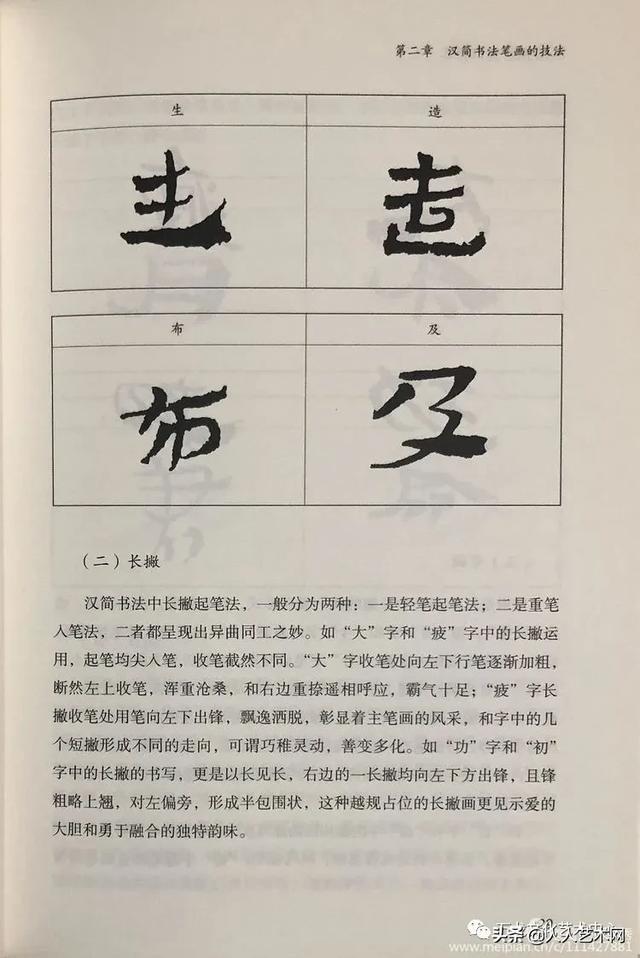 第二章　汉简书法笔画的技法
生　造
生　造
布　及
布　及
（二）长撇
汉简书法中长撇起笔法，一般分为两种：一是轻笔起笔法；二是重笔
入笔法，二者都呈现出异曲同工之妙。如“大”字和“疲”字中的长撇运
用，起笔均尖入笔，收笔截然不同。“大”字收笔处向左下行笔逐渐加粗，
断然左上收笔，浑重沧桑，和右边重捺遥相呼应，霸气十足；“疲”字长
撇收笔处用笔向左下出锋，飘逸洒脱，彰显着主笔画的风采，和字中的几
个短撇形成不同的走向，可谓巧稚灵动，善变多化。如“功”字和“初”
字中的长撇的书写，更是以长见长，右边的一长撇均向左下方出锋，且锋
粗略上翘，对左偏旁，形成半包围状，这种越规占位的长撇画更见示爱的
大胆和勇于融合的独特韵味。
头条@人人艺术网
www.meipian.cn/c/111427881